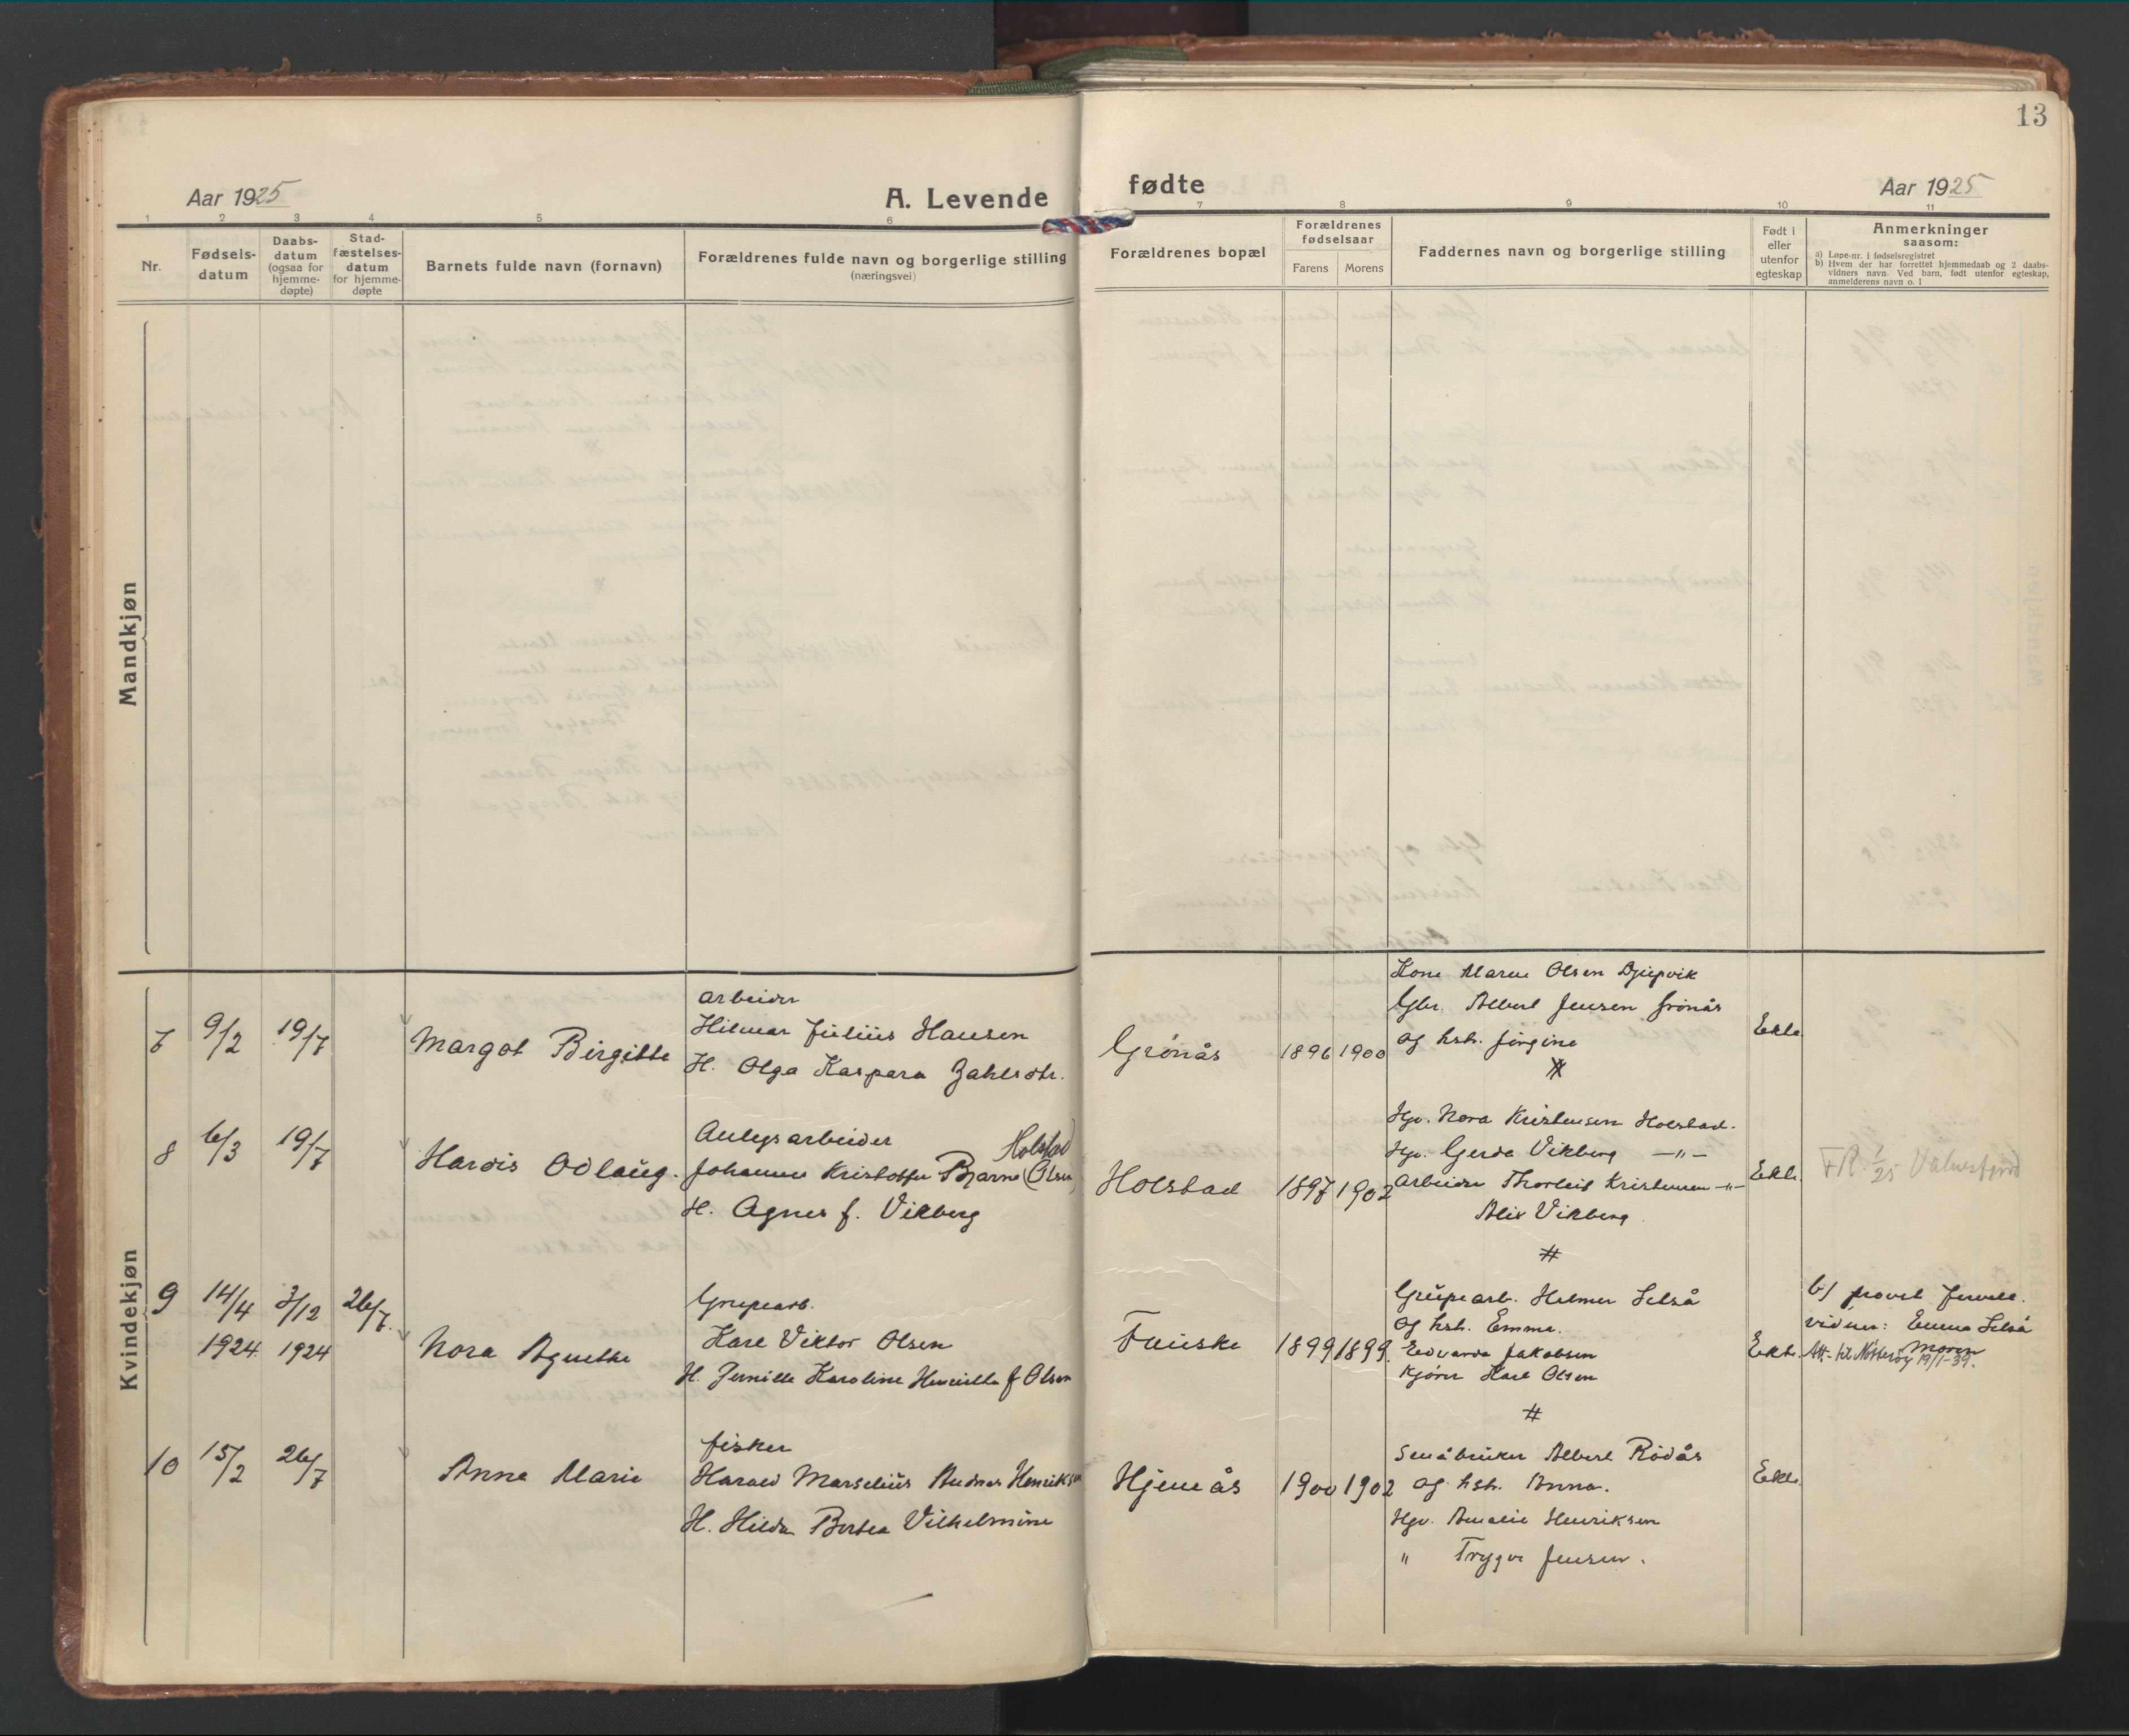 13
Aar 1925
A. Levende
fødte
Aar 1925
1 2 3 4 5 6 7 8 9 10 11
Nr.
Fødsels-
datum
Daabs-
datum
(ogsaa for
hjemme-
døpte)
Stad-
fæstelses-
datum
for hjemme-
døpte
Barnets fulde navn (fornavn)
Forældrenes fulde navn og borgerlige stilling
(næringsvei)
Forældrenes bopæl
Forældrenes
fødselsaar
Farens
Morens
Faddernes navn og borgerlige stilling
Født i
eller
utenfor
egteskap
Anmerkninger
saasom:
a) Løpe-nr. i fødselsregistret
b) Hvem der har forrettet hjemmedaab og 2 daabs-
vidners navn. Ved barn, født utenfor egteskap,
anmelderens navn o. l
Mandkjøn
Kvindekjøn
7 9/2 19/7
Margot Birgitte
arbeider
Hilmar Julius Hansen
H. Olga Kaspara Zahlsdtr.
Grønås
1896 1900
Kone Maren Olsen Djupvik
Gbr. Albert Jensen Grønås
og hst. Jørgine
#
Ekte.
8 6/3 19/7
Hardis Odlaug.
Anlegsarbeider
Holstad
Johannes Kristoffer Bjarne (Olsen)
H. Agnes f. Vikberg
Holstad
1897 1902
Hgv. Nora Kristensen Holstad.
Hgv. Gerda Vikberg —"—
Arbeider Thorleif Kristensen —"—
Alix Vikberg
#
Ekte.
FR. 1/25 Valnesfjord
9 14/4 3/12 26/7.
1924 1924
Nora Agnethe
Grupearb.
Karl Viktor Olsen
H. Pernille Karoline Henriette f Olsen
Fauske
1899 1899.
Grupearb. Helmer Setså
og hst. Emma.
Edvarda Jakobsen
Kjører Karl Olsen
#
Ekte.
b) provst Jervell.
vidner: Emma Setså
Moren
Att.- til Nøtterøy 19/1-39.
10 15/2 26/7
Anna Marie
fisker
Harald Marselius Andreas Henriksen
H. Hilda Bertea Vilhelmine
Hjemås
1900 1902
Småbruker Albert Rødås
og hst. Anna.
Hgv. Amalie Henriksen
" Trygve Jensen.
Ekte.